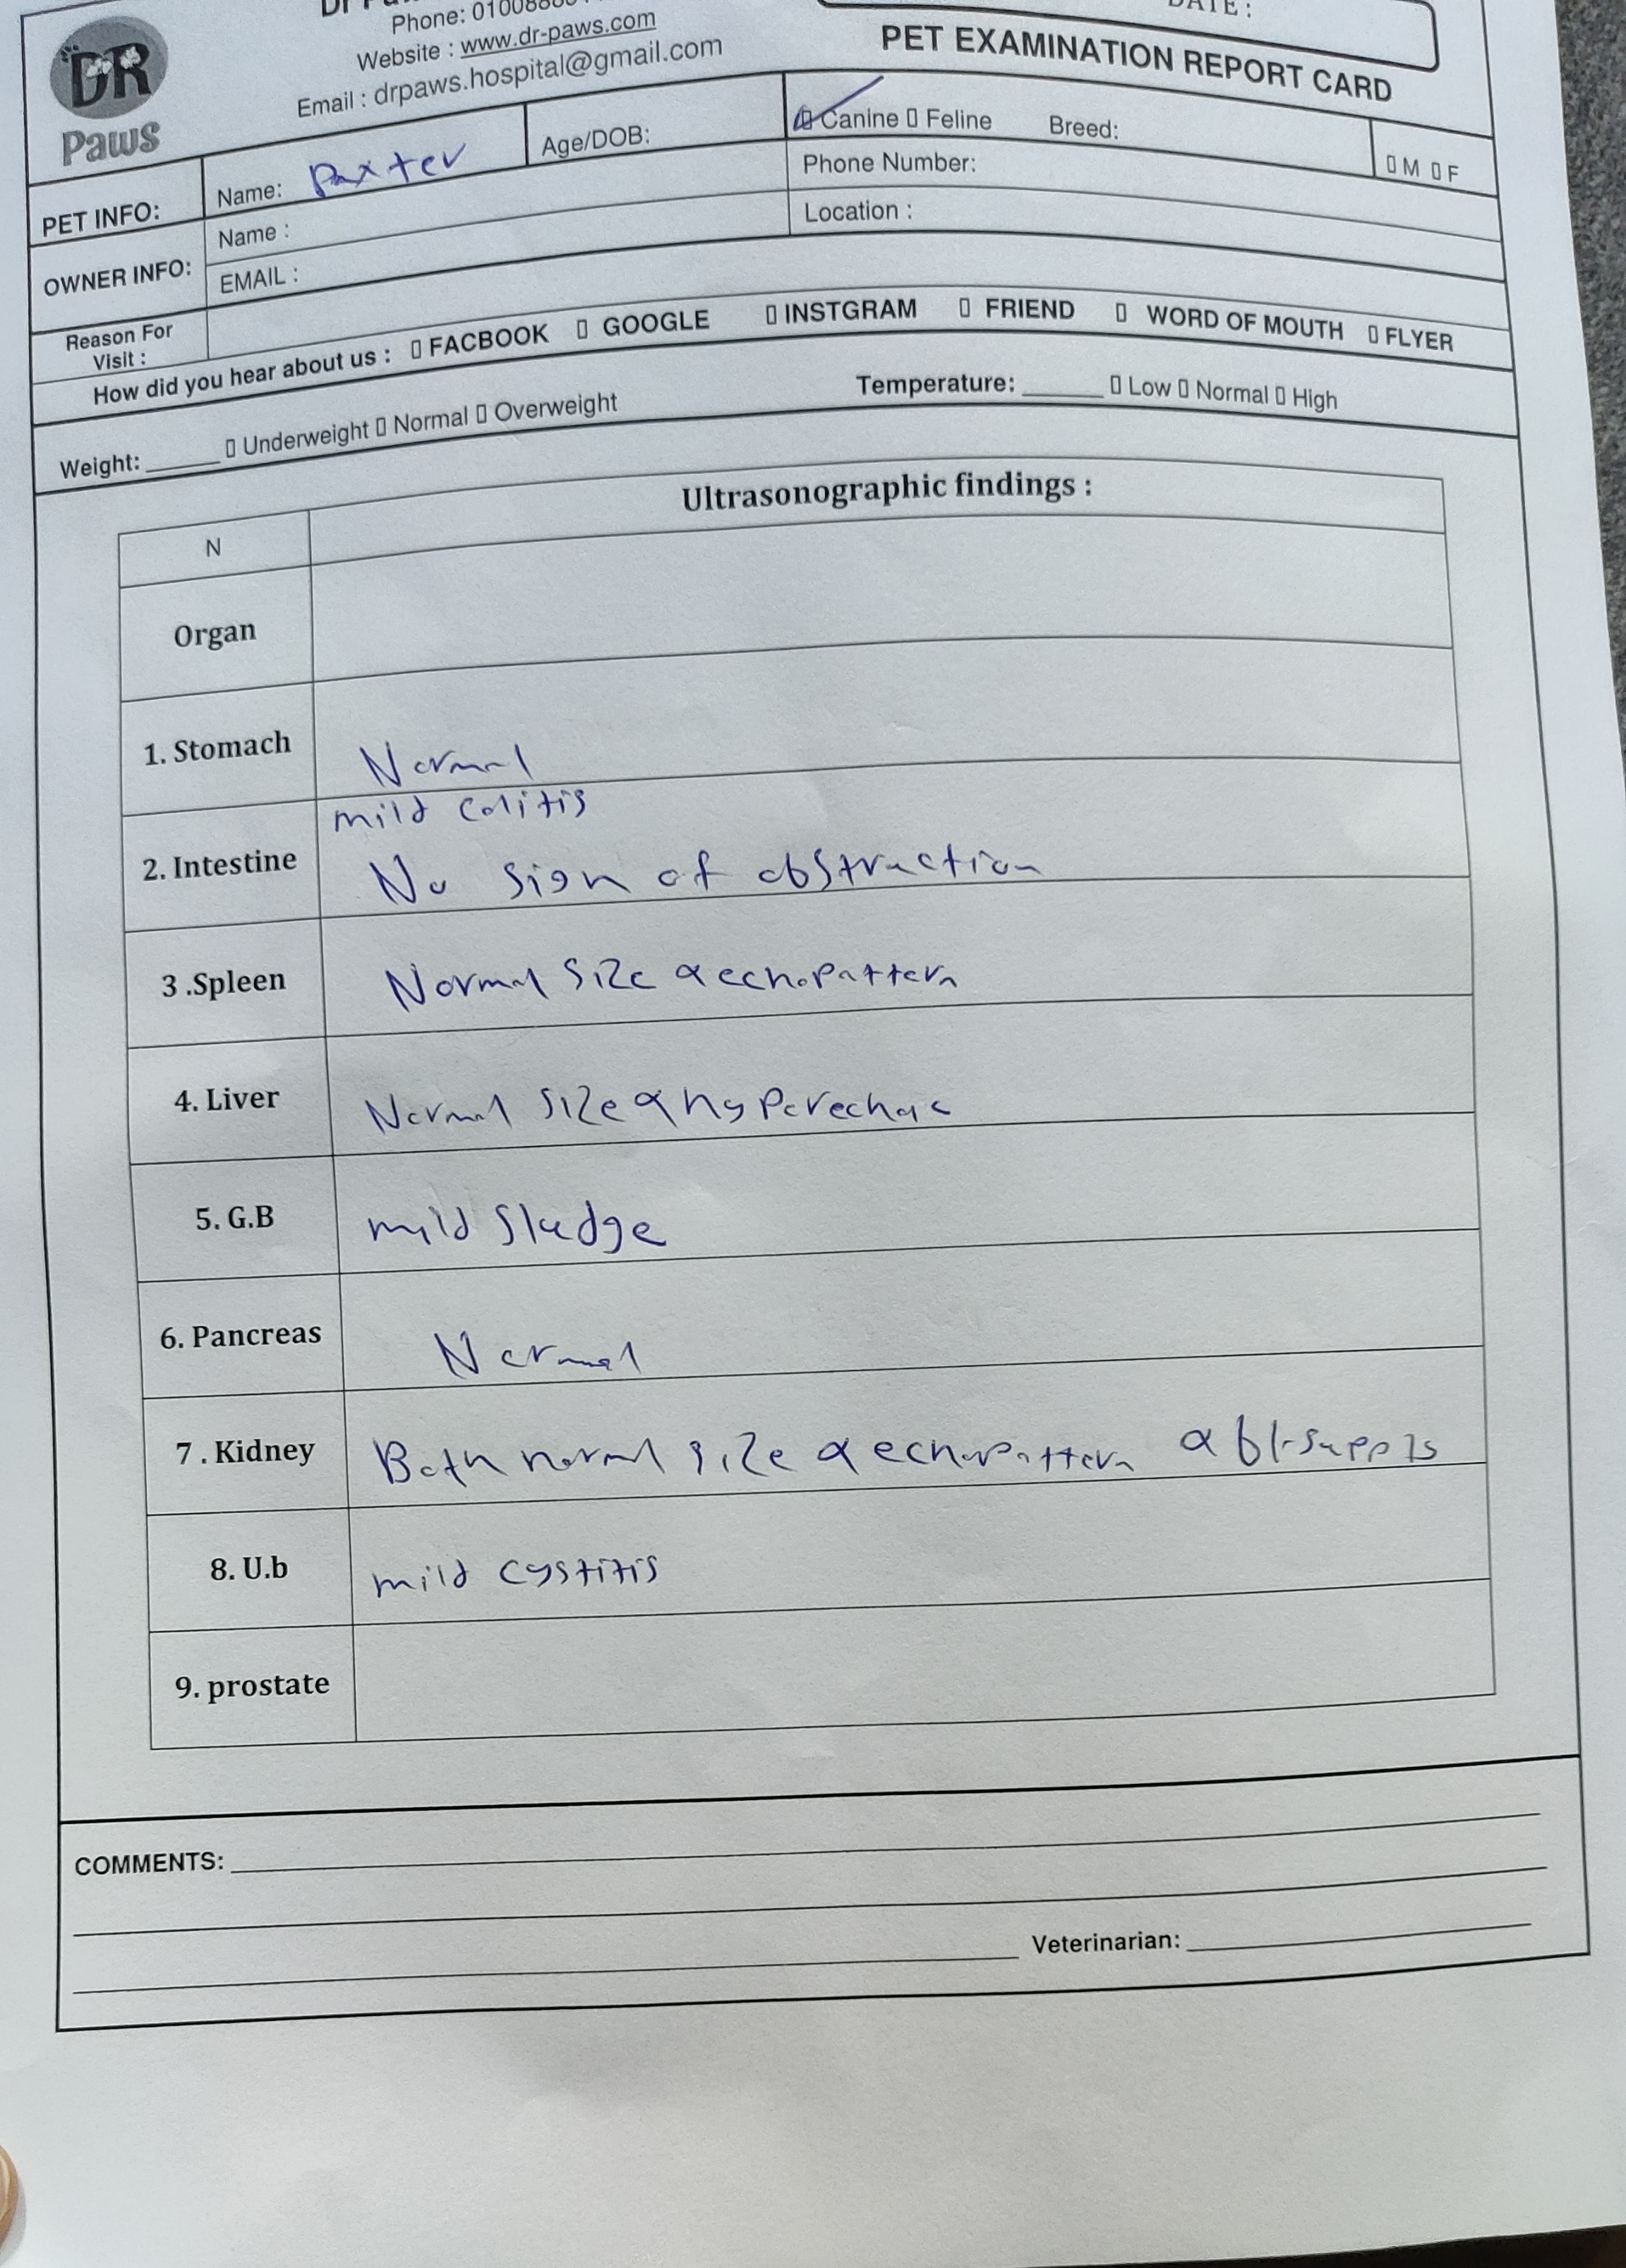 DR
Paws
Phone: 01008
Website : www.dr-paws.com
Email : drpaws.hospital@gmail.com
DATE:
PET EXAMINATION REPORT CARD
PET INFO:
Name: Paxter
Age/DOB:
Canine Feline Breed:
M F
OWNER INFO:
Name :
Phone Number:
EMAIL :
Location :
Reason For
Visit :
How did you hear about us : FACBOOK GOOGLE INSTGRAM FRIEND WORD OF MOUTH FLYER
Weight: ______ Underweight Normal Overweight
Temperature: ______ Low Normal High
N
Ultrasonographic findings :
Organ
1. Stomach
Normal
2. Intestine
mild colitis
No sign of obstruction
3 .Spleen
Normal size & echopattern
4. Liver
Normal size & hyperechoic
5. G.B
mild sludge
6. Pancreas
Normal
7 . Kidney
Both normal size & echopattern &
8. U.b
mild cystitis
9. prostate
COMMENTS:
Veterinarian: